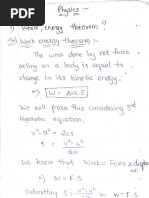 Physics :-
1) Work, energy theorem :)
Work energy theorem :-
The work done by net force
acting on a body is equal to
change in its kinetic energy.
⇒ W = Δk.E
We will prove this considering 3rd
kynematic equation.
v² - u² = 2as
s = v² - u² / 2a
We know that Work = Force x displace
ment.
W = F.S
submitting S = v² - u² / 2a in W = F.S